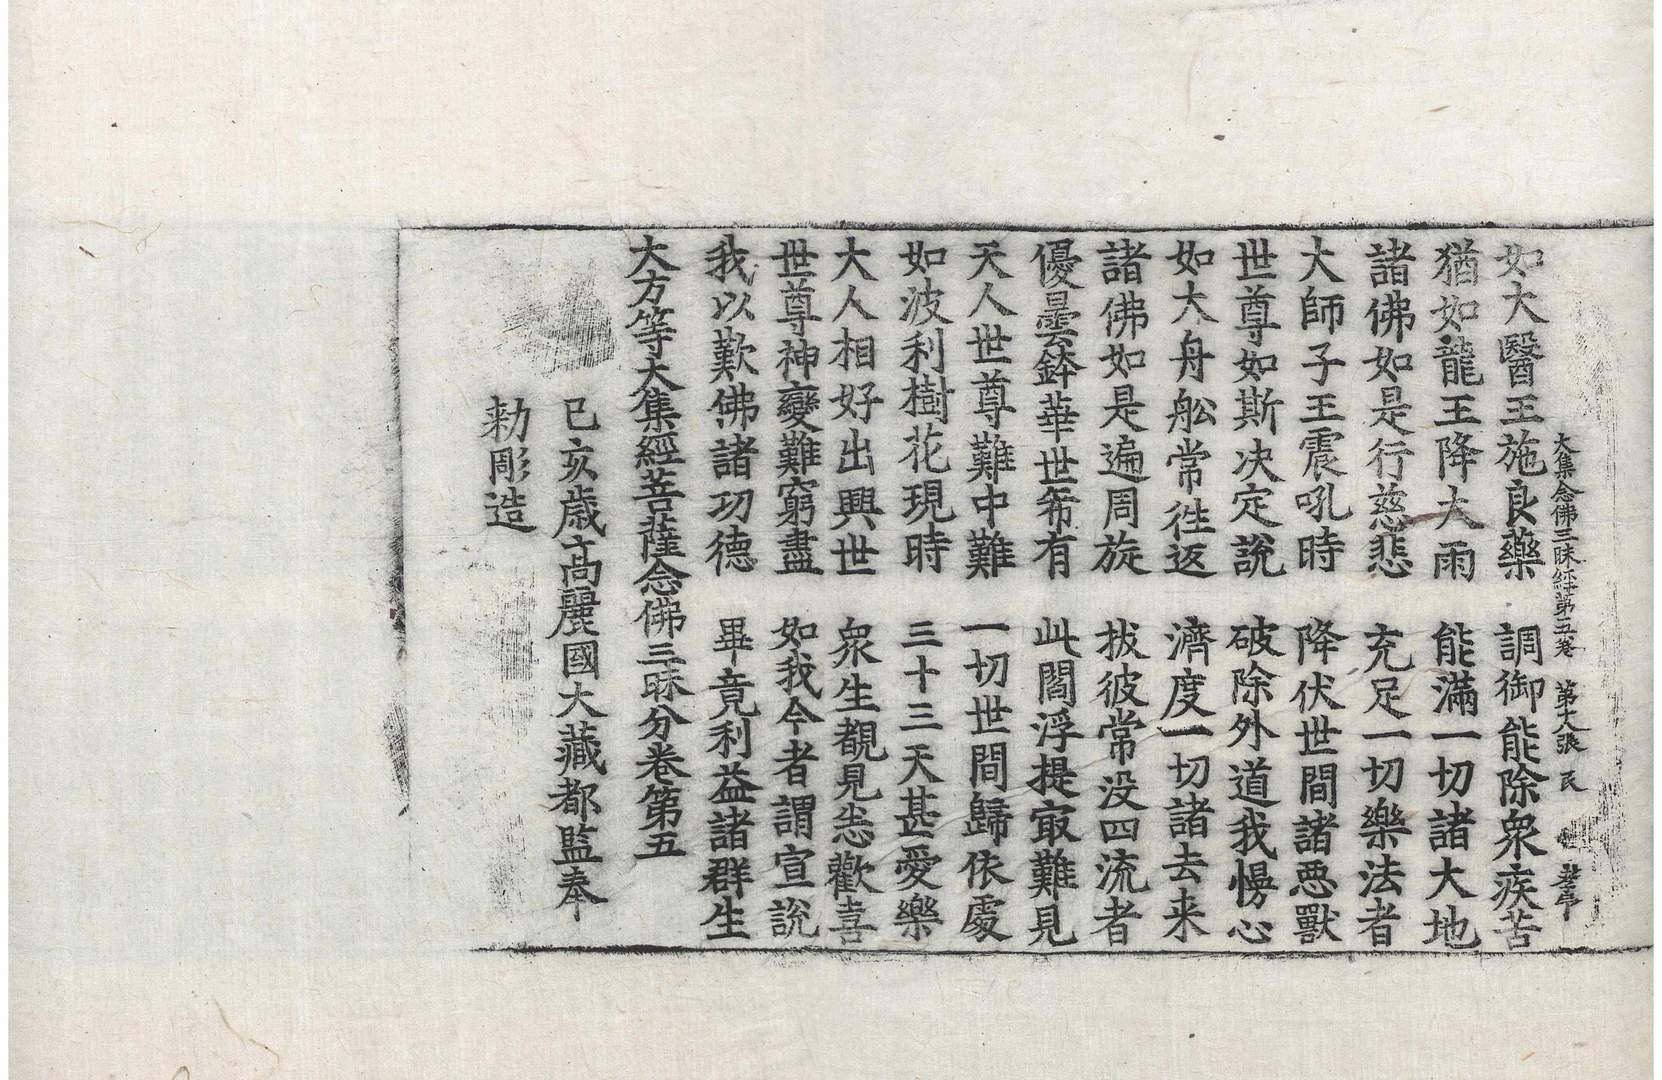 大集念佛三昧經第五卷 第大張 民
如大醫王施良藥 調御能除衆疾苦
猶如龍王降大雨 能滿一切諸大地
諸佛如是行慈悲 充足一切樂法者
大師子王震吼時 降伏世間諸惡獸
世尊如斯决定說 破除外道我慢心
如大舟舩常往返 濟度一切諸去来
諸佛如是遍周旋 拔彼常没四流者
優曇鉢華世希有 此閻浮提㝡難見
天人世尊難中難 一切世間歸依處
如波利樹花現時 三十三天甚愛樂
大人相好出興世 衆生覩見悉歡喜
世尊神變難窮盡 如我今者謂宣說
我以歎佛諸功德 畢竟利益諸群生
大方等大集經菩薩念佛三昧分卷第五
己亥歲高麗國大藏都監奉
勑彫造